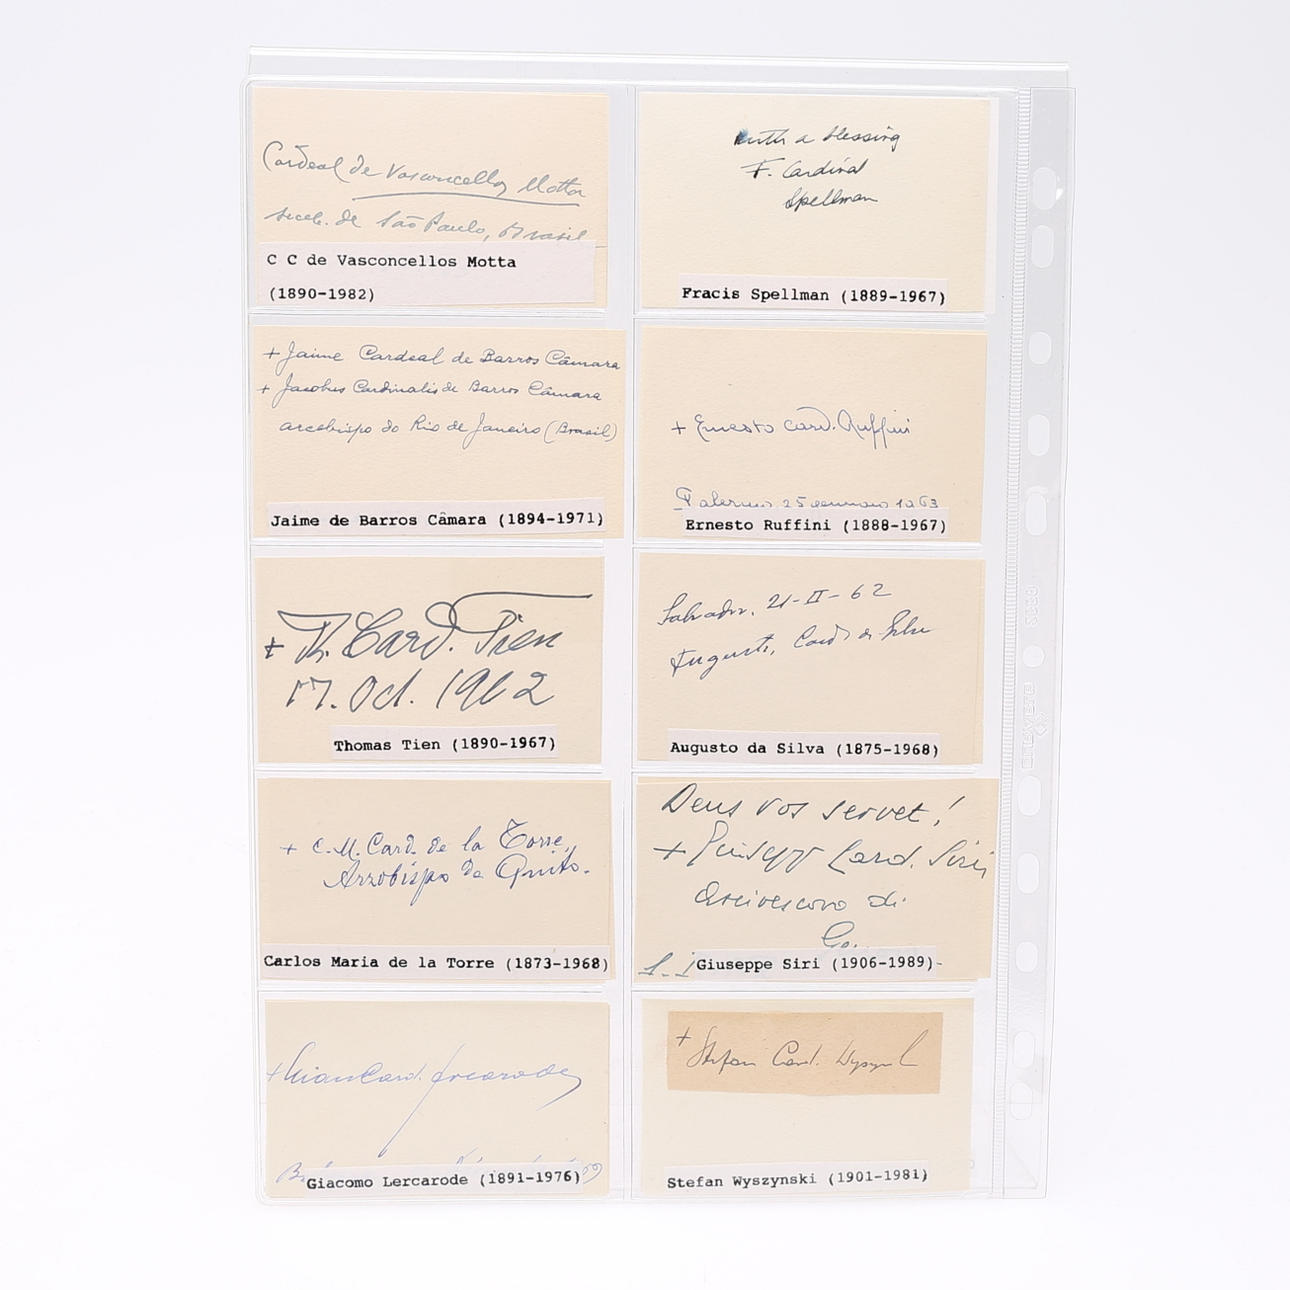 Cardeal de Vasconcellos Motta
arceb. de São Paulo, Brasil
C C de Vasconcellos Motta
(1890-1982)
with a blessing
F. Cardinal
Spellman
Fracis Spellman (1889-1967)
+ Jaime Cardeal de Barros Câmara
+ Jacobus Cardinalis de Barros Câmara
arcebispo do Rio de Janeiro (Brasil)
Jaime de Barros Câmara (1894-1971)
+ Ernesto Card. Ruffini
Palermo 25 gennaio 1963
Ernesto Ruffini (1888-1967)
+ Th. Card. Tien
17. Oct. 1962
Thomas Tien (1890-1967)
Salvador, 21-II-62
Augusto, Card. da Silva
Augusto da Silva (1875-1968)
+ C. M. Card. de la Torre,
Arzobispo de Quito.
Carlos Maria de la Torre (1873-1968)
Deus vos servet!
+ Giuseppe Card. Siri
Arcivescovo di
Giuseppe Siri (1906-1989)
Giacomo Lercarode (1891-1976)
+ Stefan Card. Wyszyński
Stefan Wyszynski (1901-1981)